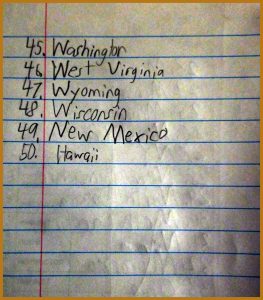 45. Washington
46. West Virginia
47. Wyoming
48. Wisconsin
49. New Mexico
50. Hawaii